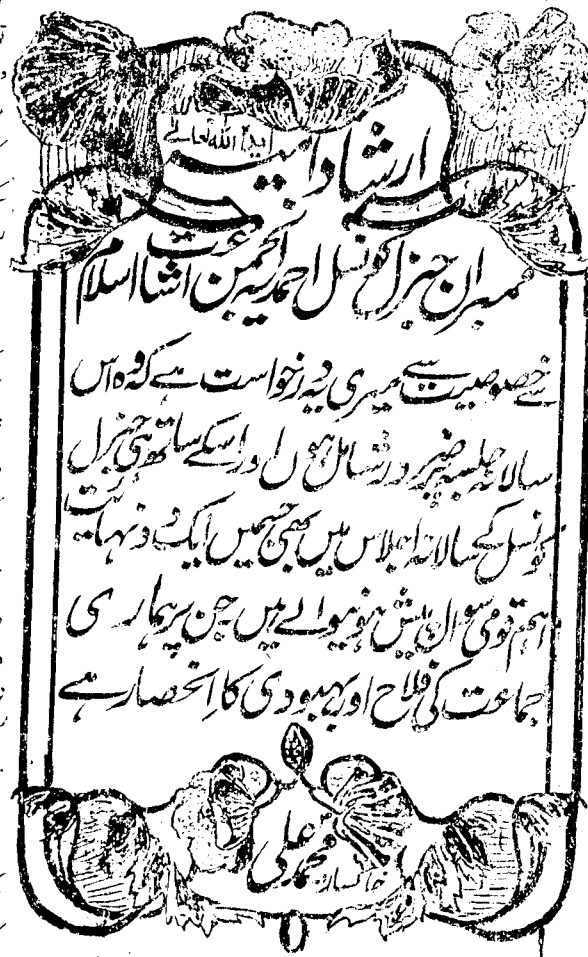 ارشاد امیر
ایدہ اللہ تعالیٰ
ممبران جنرل کونسل احمدیہ انجمن اشاعت اسلام
سے خصوصیت سے میری یہ درخواست ہے کہ وہ اس
سالانہ جلسہ پر ضرور شامل ہوں اور اسکے ساتھ ہی جنرل
کونسل کے سالانہ اجلاس میں بھی جسمیں ایک دو نہایت
اہم قومی سوال پیش ہونیوالے ہیں جن پر ہماری
جماعت کی فلاح اور بہبودی کا انحصار ہے
خاکسار محمد علی